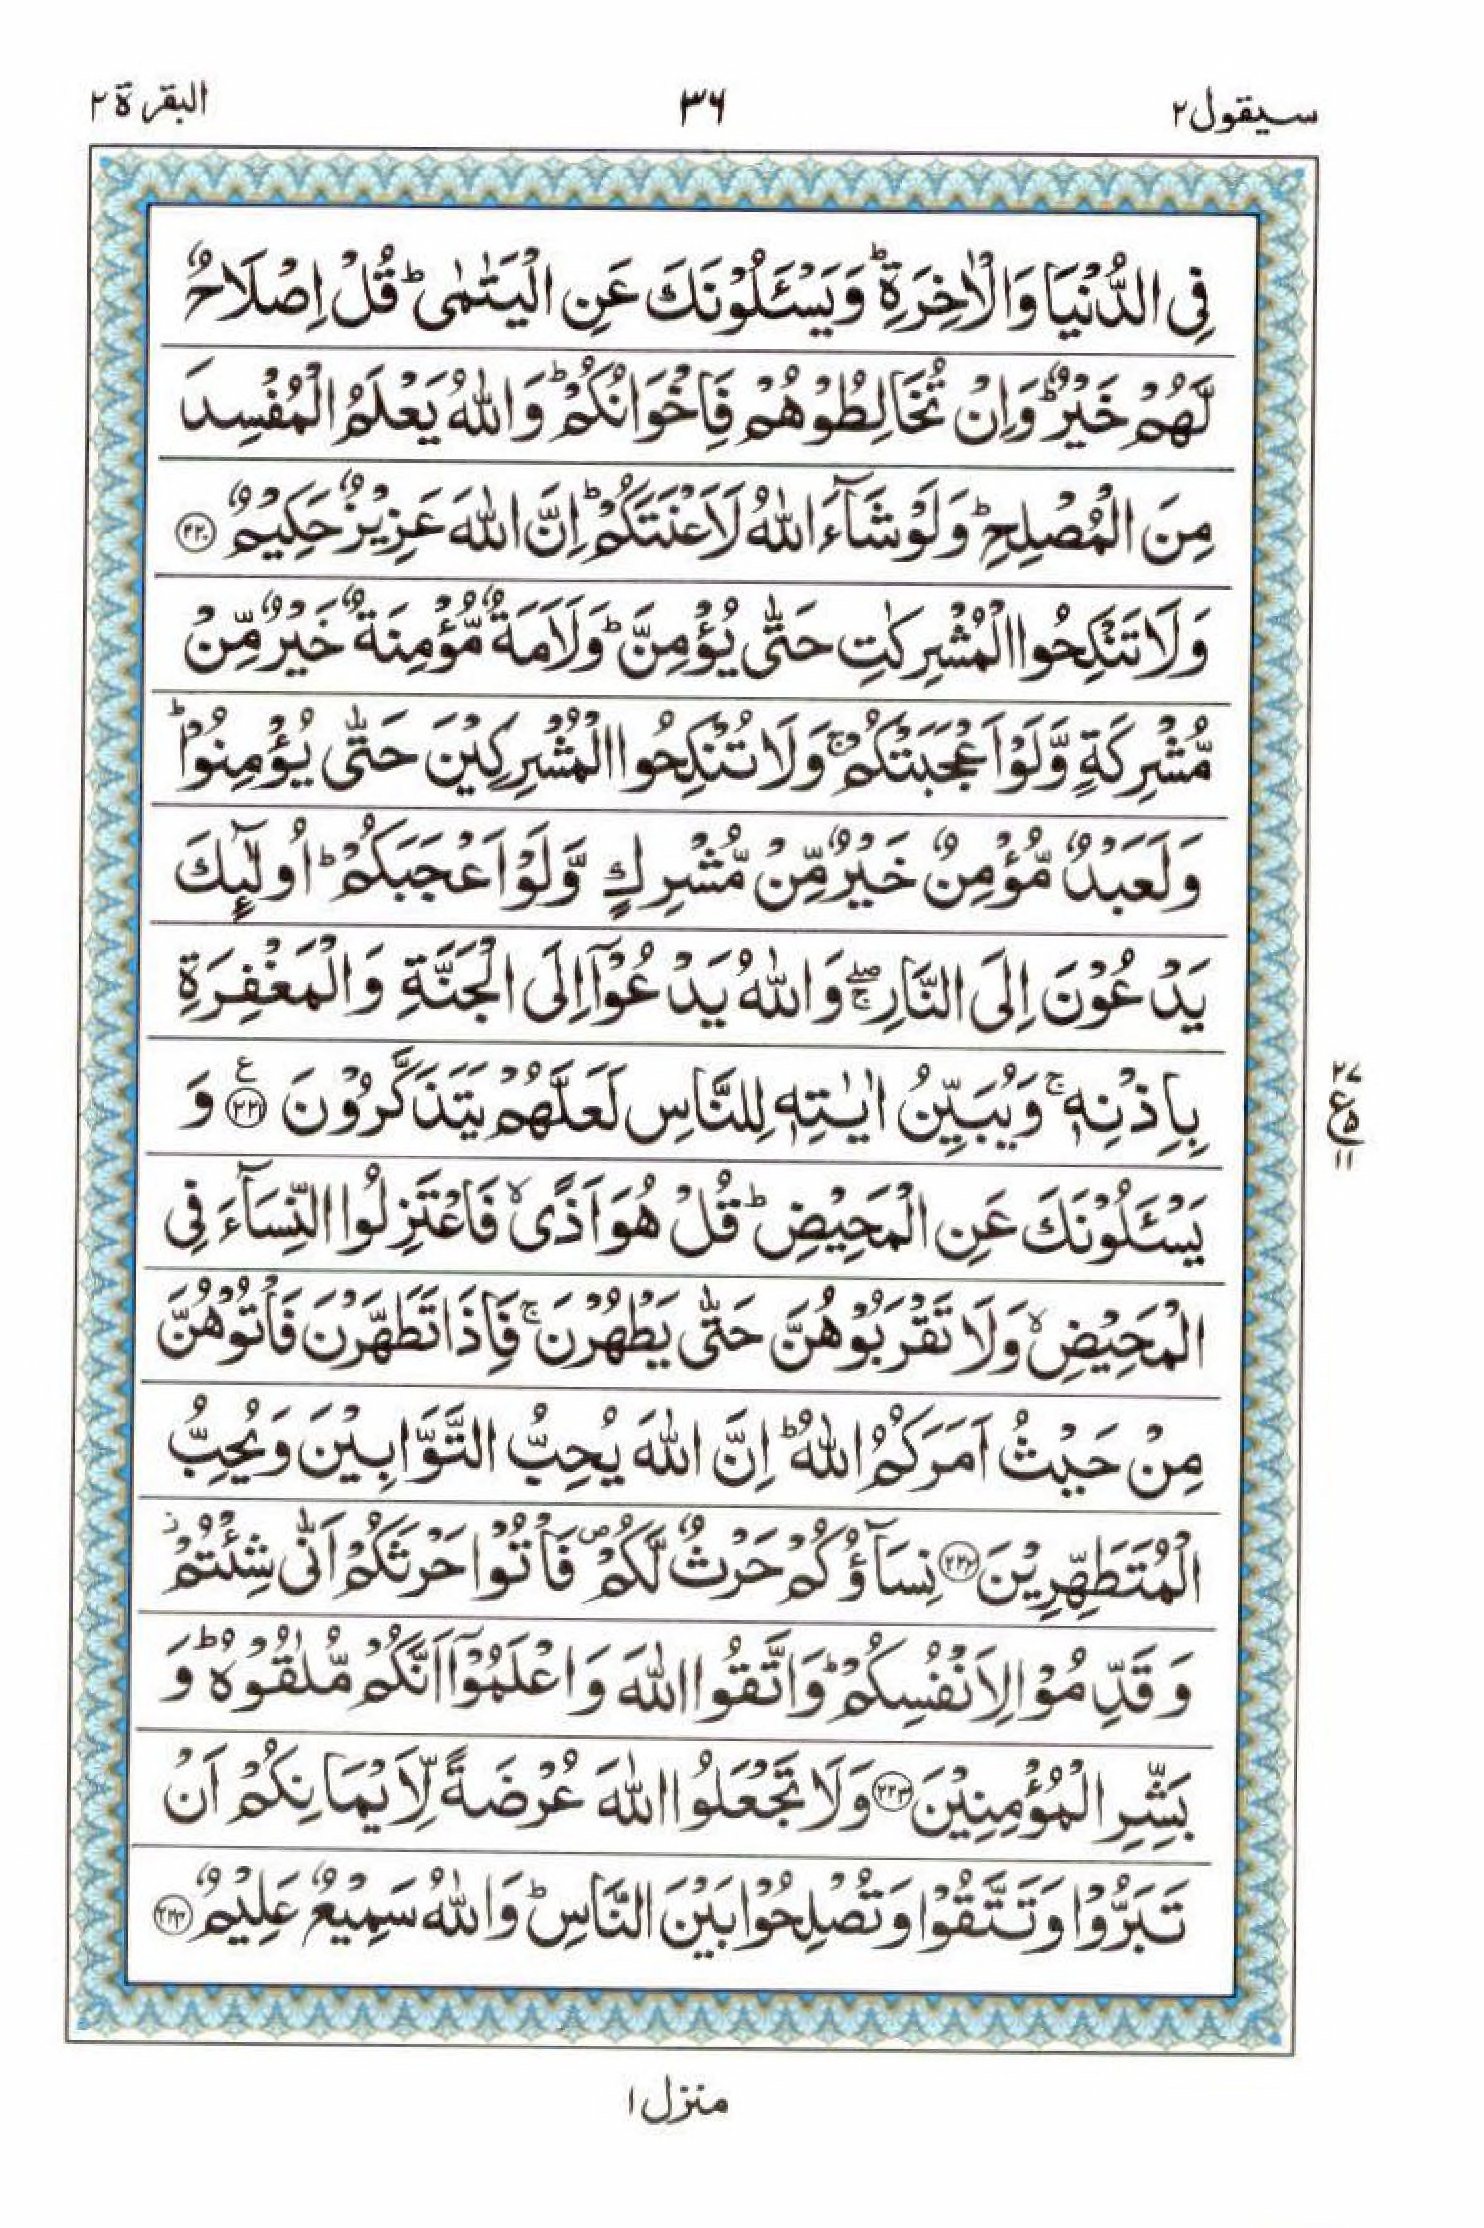 سيقول ٢
٣٦
البقرة ٢
فِى الدُّنْيَا وَالْاٰخِرَةِ ؕ وَيَسْـَٔلُوْنَكَ عَنِ الْيَتٰمٰى ؕ قُلْ اِصْلَاحٌ
لَّهُمْ خَيْرٌ ؕ وَاِنْ تُخَالِطُوْهُمْ فَاِخْوَانُكُمْ ؕ وَاللّٰهُ يَعْلَمُ الْمُفْسِدَ
مِنَ الْمُصْلِحِ ؕ وَلَوْ شَآءَ اللّٰهُ لَاَعْنَتَكُمْ ؕ اِنَّ اللّٰهَ عَزِيْزٌ حَكِيْمٌ ﴿٢٢٠﴾
وَلَا تَنْكِحُوا الْمُشْرِكٰتِ حَتّٰى يُؤْمِنَّ ؕ وَلَاَمَةٌ مُّؤْمِنَةٌ خَيْرٌ مِّنْ
مُّشْرِكَةٍ وَّلَوْ اَعْجَبَتْكُمْ ۚ وَلَا تُنْكِحُوا الْمُشْرِكِيْنَ حَتّٰى يُؤْمِنُوْا ؕ
وَلَعَبْدٌ مُّؤْمِنٌ خَيْرٌ مِّنْ مُّشْرِكٍ وَّلَوْ اَعْجَبَكُمْ ؕ اُولٰٓئِكَ
يَدْعُوْنَ اِلَى النَّارِ ۖۚ وَاللّٰهُ يَدْعُوْٓا اِلَى الْجَنَّةِ وَالْمَغْفِرَةِ
بِاِذْنِهٖ ۚ وَيُبَيِّنُ اٰيٰتِهٖ لِلنَّاسِ لَعَلَّهُمْ يَتَذَكَّرُوْنَ ﴿٢٢١﴾ ع وَ
٢٧
ع ٥
١١
يَسْـَٔلُوْنَكَ عَنِ الْمَحِيْضِ ؕ قُلْ هُوَ اَذًى ۙ فَاعْتَزِلُوا النِّسَآءَ فِى
الْمَحِيْضِ ۙ وَلَا تَقْرَبُوْهُنَّ حَتّٰى يَطْهُرْنَ ۚ فَاِذَا تَطَهَّرْنَ فَاْتُوْهُنَّ
مِنْ حَيْثُ اَمَرَكُمُ اللّٰهُ ؕ اِنَّ اللّٰهَ يُحِبُّ التَّوَّابِيْنَ وَيُحِبُّ
الْمُتَطَهِّرِيْنَ ﴿٢٢٢﴾ نِسَآؤُكُمْ حَرْثٌ لَّكُمْ ص فَاْتُوْا حَرْثَكُمْ اَنّٰى شِئْتُمْ ز
وَقَدِّمُوْا لِاَنْفُسِكُمْ ؕ وَاتَّقُوا اللّٰهَ وَاعْلَمُوْٓا اَنَّكُمْ مُّلٰقُوْهُ ؕ وَ
بَشِّرِ الْمُؤْمِنِيْنَ ﴿٢٢٣﴾ وَلَا تَجْعَلُوا اللّٰهَ عُرْضَةً لِّاَيْمَانِكُمْ اَنْ
تَبَرُّوْا وَتَتَّقُوْا وَتُصْلِحُوْا بَيْنَ النَّاسِ ؕ وَاللّٰهُ سَمِيْعٌ عَلِيْمٌ ﴿٢٢٤﴾
منزل ١